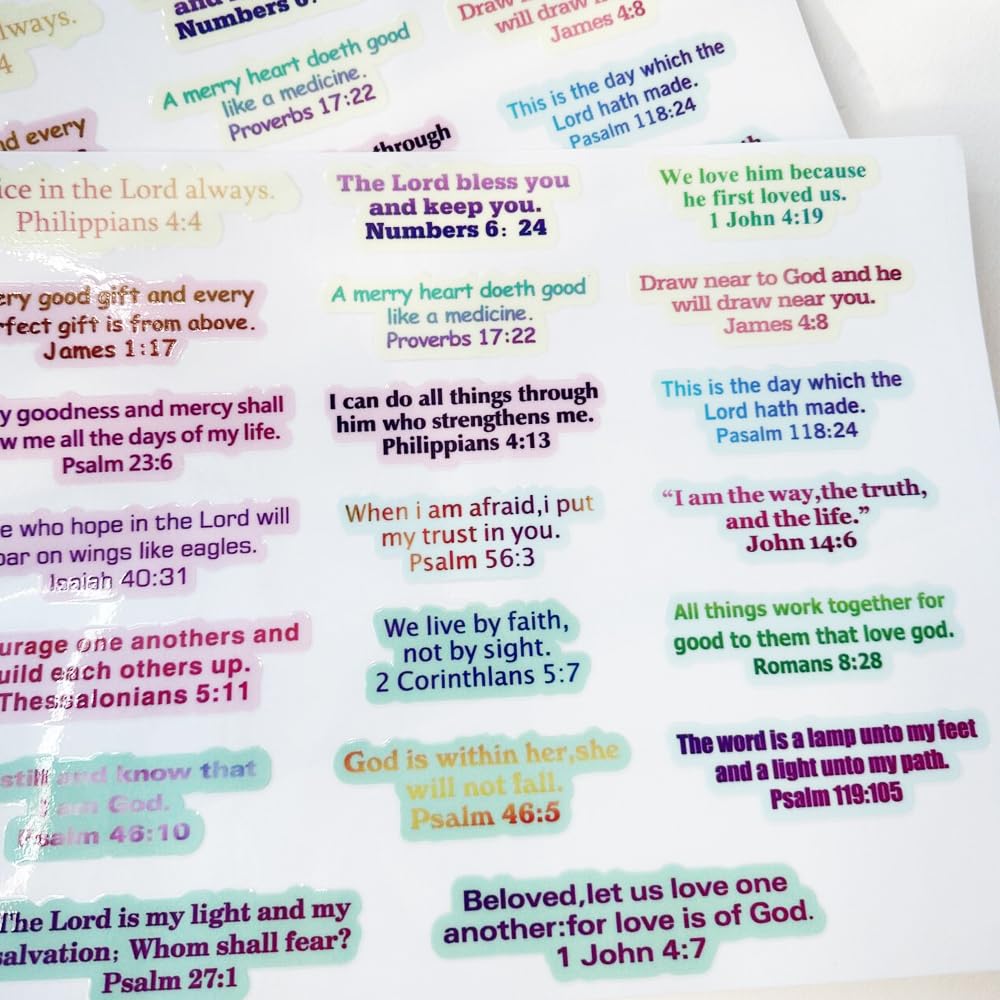 always.
4
and
Numbers 6:
Draw
will draw
James 4:8
A merry heart doeth good
like a medicine.
Proverbs 17:22
This is the day which the
Lord hath made.
Pasalm 118:24
and every
through
ice in the Lord always.
Philippians 4:4
The Lord bless you
and keep you.
Numbers 6: 24
We love him because
he first loved us.
1 John 4:19
ery good gift and every
rfect gift is from above.
James 1:17
A merry heart doeth good
like a medicine.
Proverbs 17:22
Draw near to God and he
will draw near you.
James 4:8
y goodness and mercy shall
w me all the days of my life.
Psalm 23:6
I can do all things through
him who strengthens me.
Philippians 4:13
This is the day which the
Lord hath made.
Pasalm 118:24
e who hope in the Lord will
oar on wings like eagles.
Isaiah 40:31
When i am afraid,i put
my trust in you.
Psalm 56:3
“I am the way,the truth,
and the life.”
John 14:6
urage one anothers and
uild each others up.
Thessalonians 5:11
We live by faith,
not by sight.
2 Corinthlans 5:7
All things work together for
good to them that love god.
Romans 8:28
still and know that
I am God.
Psalm 46:10
God is within her,she
will not fall.
Psalm 46:5
The word is a lamp unto my feet
and a light unto my path.
Psalm 119:105
The Lord is my light and my
salvation; Whom shall fear?
Psalm 27:1
Beloved,let us love one
another:for love is of God.
1 John 4:7